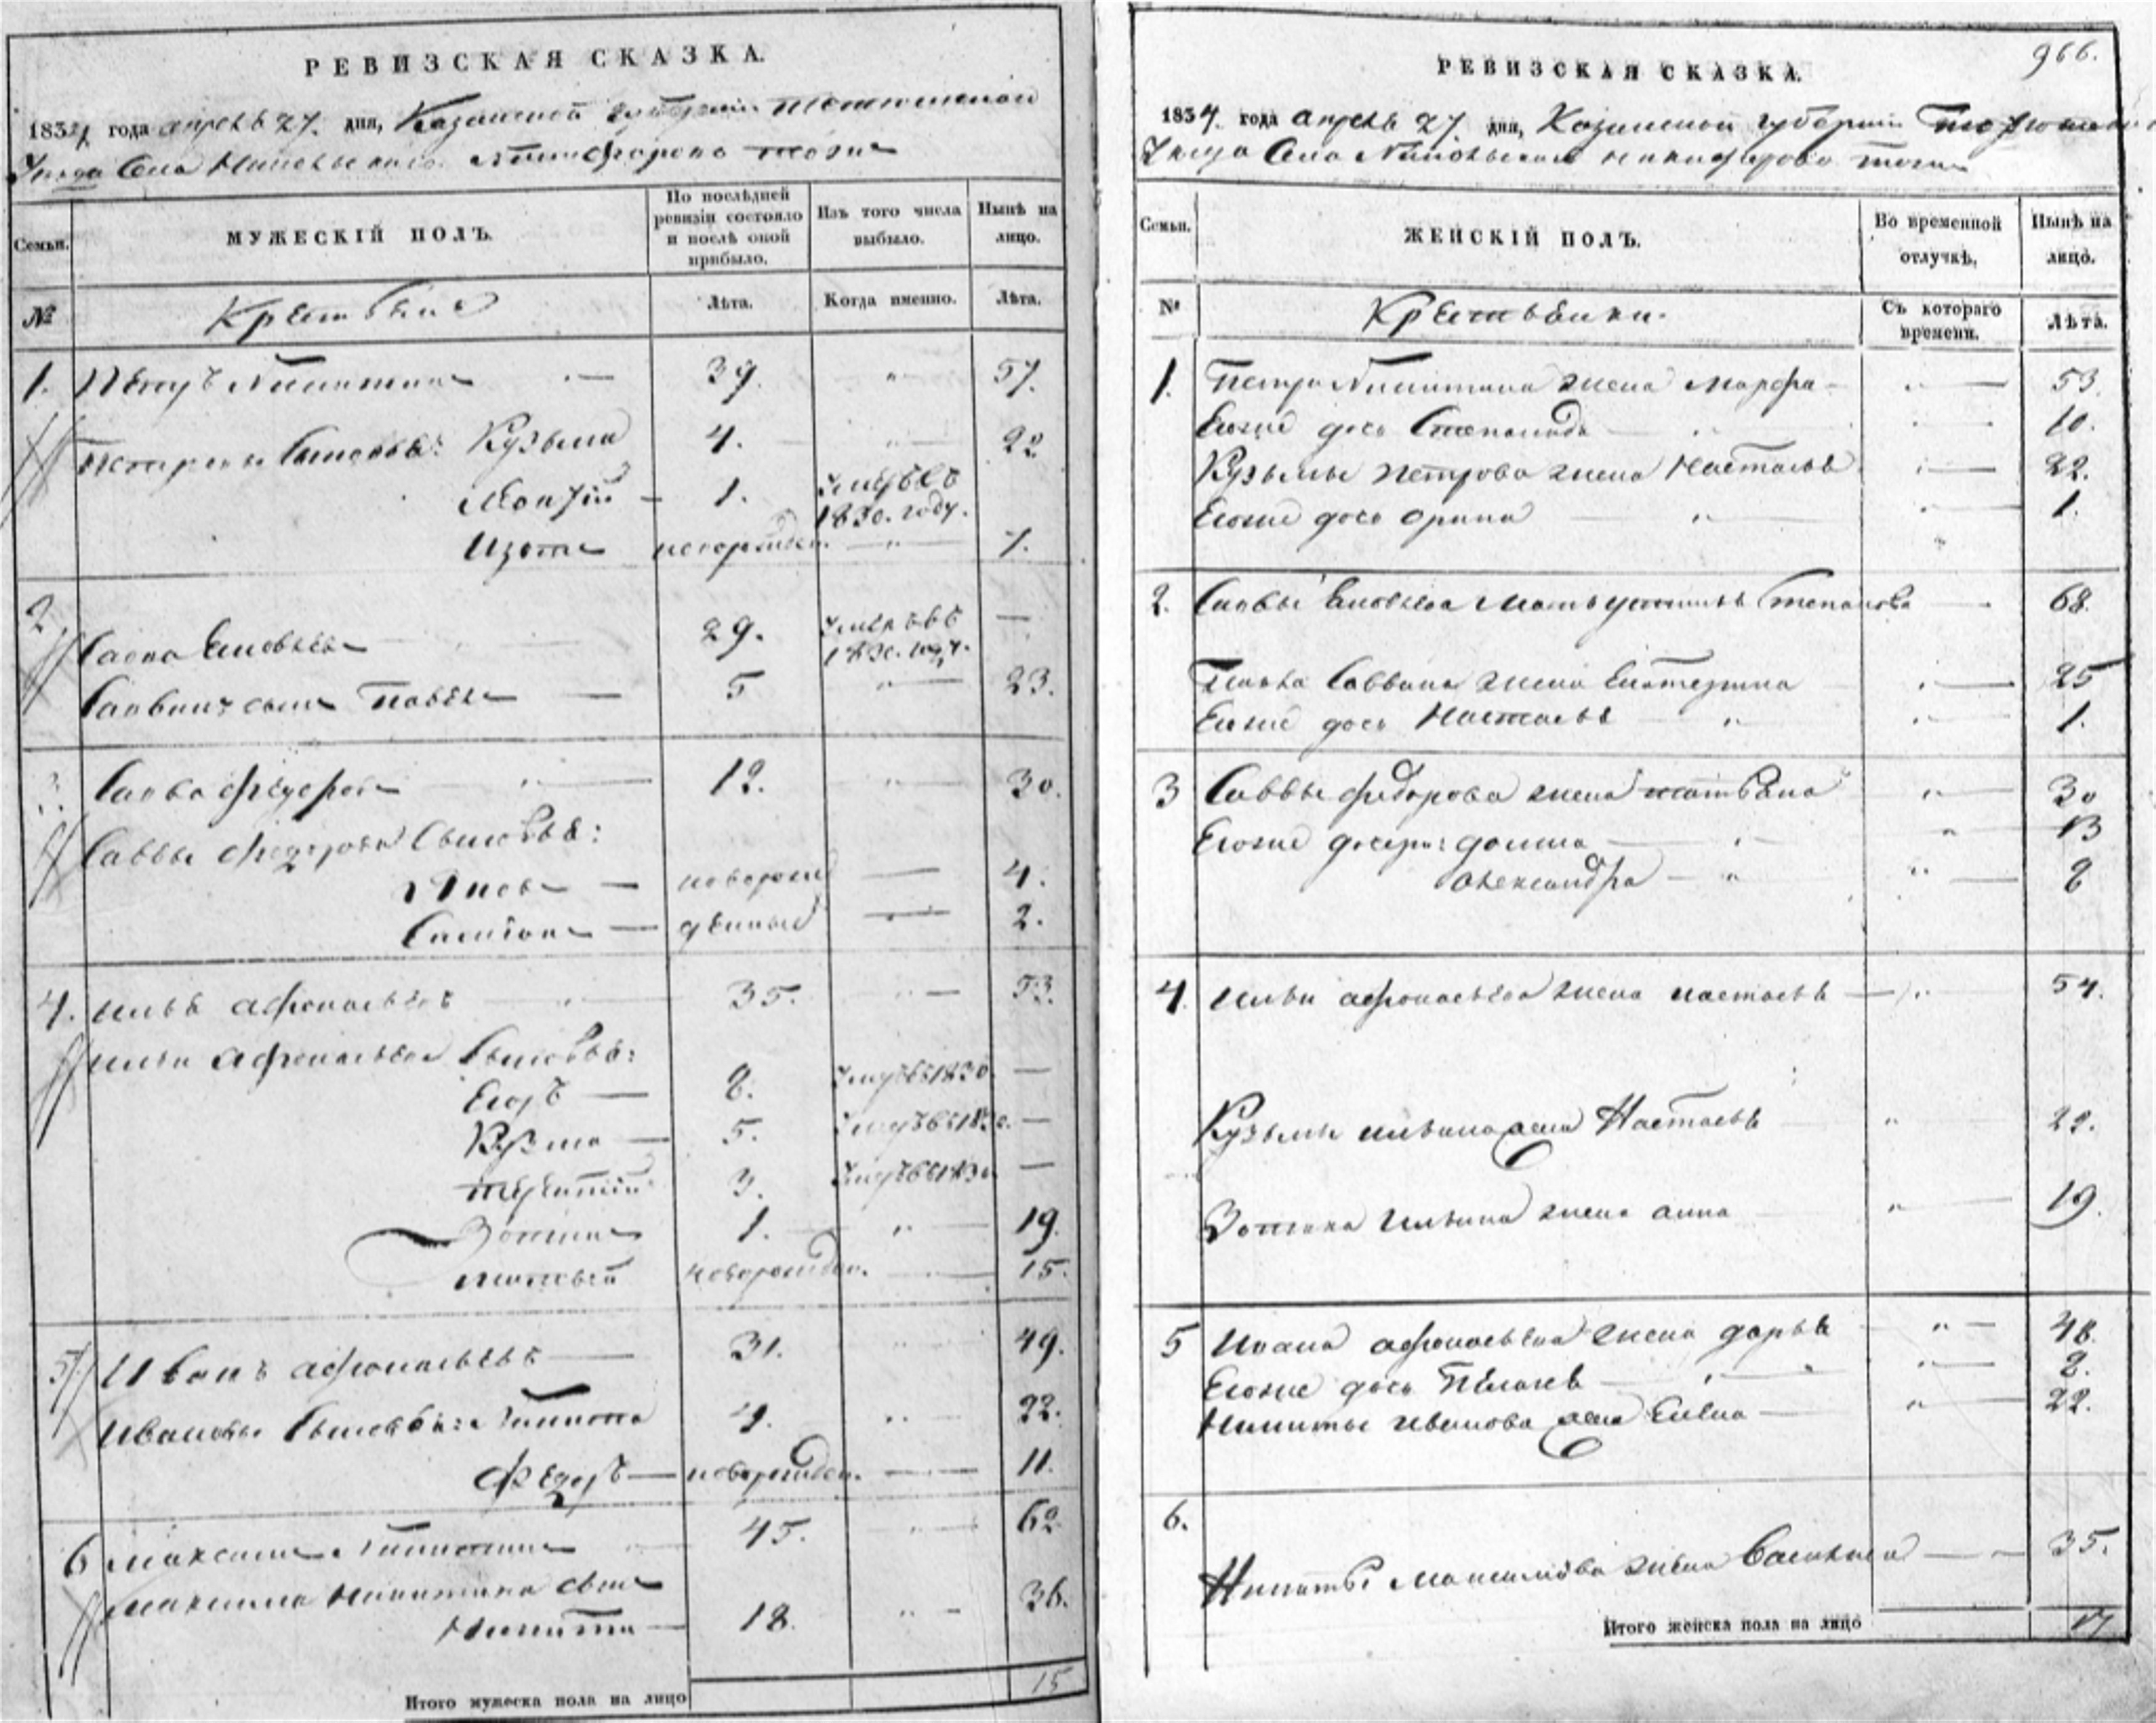 РЕВИЗСКАЯ СКАЗКА.
1834 года апреля 27. дня, Казанской губернии
Уезда Села Никифорово тожъ
Семьи. МУЖЕСКІЙ ПОЛЪ. По послѣдней ревизіи состояло и послѣ оной прибыло. Изъ того числа выбыло. Нынѣ на лицо.
№ Крестьяне Лѣта. Когда именно. Лѣта.
1. Петръ Никитинъ 39. " 57.
Петровы Сыновья: Кузьма 4. " 22
1. умре въ 1830. году.
Изотъ новорожден. " 7.
2 Савва 29. умре въ 1830. году. —
Саввинъ сынъ Павелъ — 5 " 23.
3. Савва Федоровъ " 12. " 30.
Саввы Федорова Сыновья:
Яковъ — новорож — 4.
— денные — 2.
4. Илья Афонасьевъ " 35. " 53.
Ильи Афонасьева Сыновья:
Егоръ — 8. умре въ 1830. —
Кузма — 5. умре въ 18 —
Терентій 3. умре въ 1830 —
Зотикъ 1. " 19.
новорожден. — 15.
5 Иванъ Афонасьевъ — 31. " 49.
Ивановы Сыновья: Никита 4. " 22.
Федоръ — новорожден. — 11.
6 Максимъ Никитинъ 45. " 62.
Максима Никитина сынъ
Никита — 18. " 36.
Итого мужеска пола на лицо 15
966.
РЕВИЗСКАЯ СКАЗКА.
1834. года апреля 27. дня, Казанской губерніи
Уезда Села Никифорово тожъ
Семьи. ЖЕНСКІЙ ПОЛЪ. Во временной отлучкѣ. Нынѣ на лицо.
№ Крестьянки. Съ котораго времени. Лѣта.
1. Петра Никитина жена Марфа " — 53.
Егоже дочь Степанида " 10.
Кузьмы Петрова жена Настасья " — 22.
Егоже дочь Орина — " — 1.
2. Саввы мать Устинья Степанова — 68.
Павла Саввина жена Екатерина " — 25
Егоже дочь Настасья " " — 1.
3 Саввы Федорова жена " — 30
Егоже дочери: Домна — " — 13
Александра — " " — 8
4. Ильи Афонасьева жена Настасья — " 54.
Кузьмы Ильина жена Настасья " — 22.
Зотика Ильина жена Анна " — 19.
5 Ивана Афонасьева жена Дарья " — 48.
Егоже дочь Пелагея — " " — 2.
Никиты Иванова жена Елена — " — 22.
6. Никиты Максимова жена Василиса — 35.
Итого женска пола на лицо 17